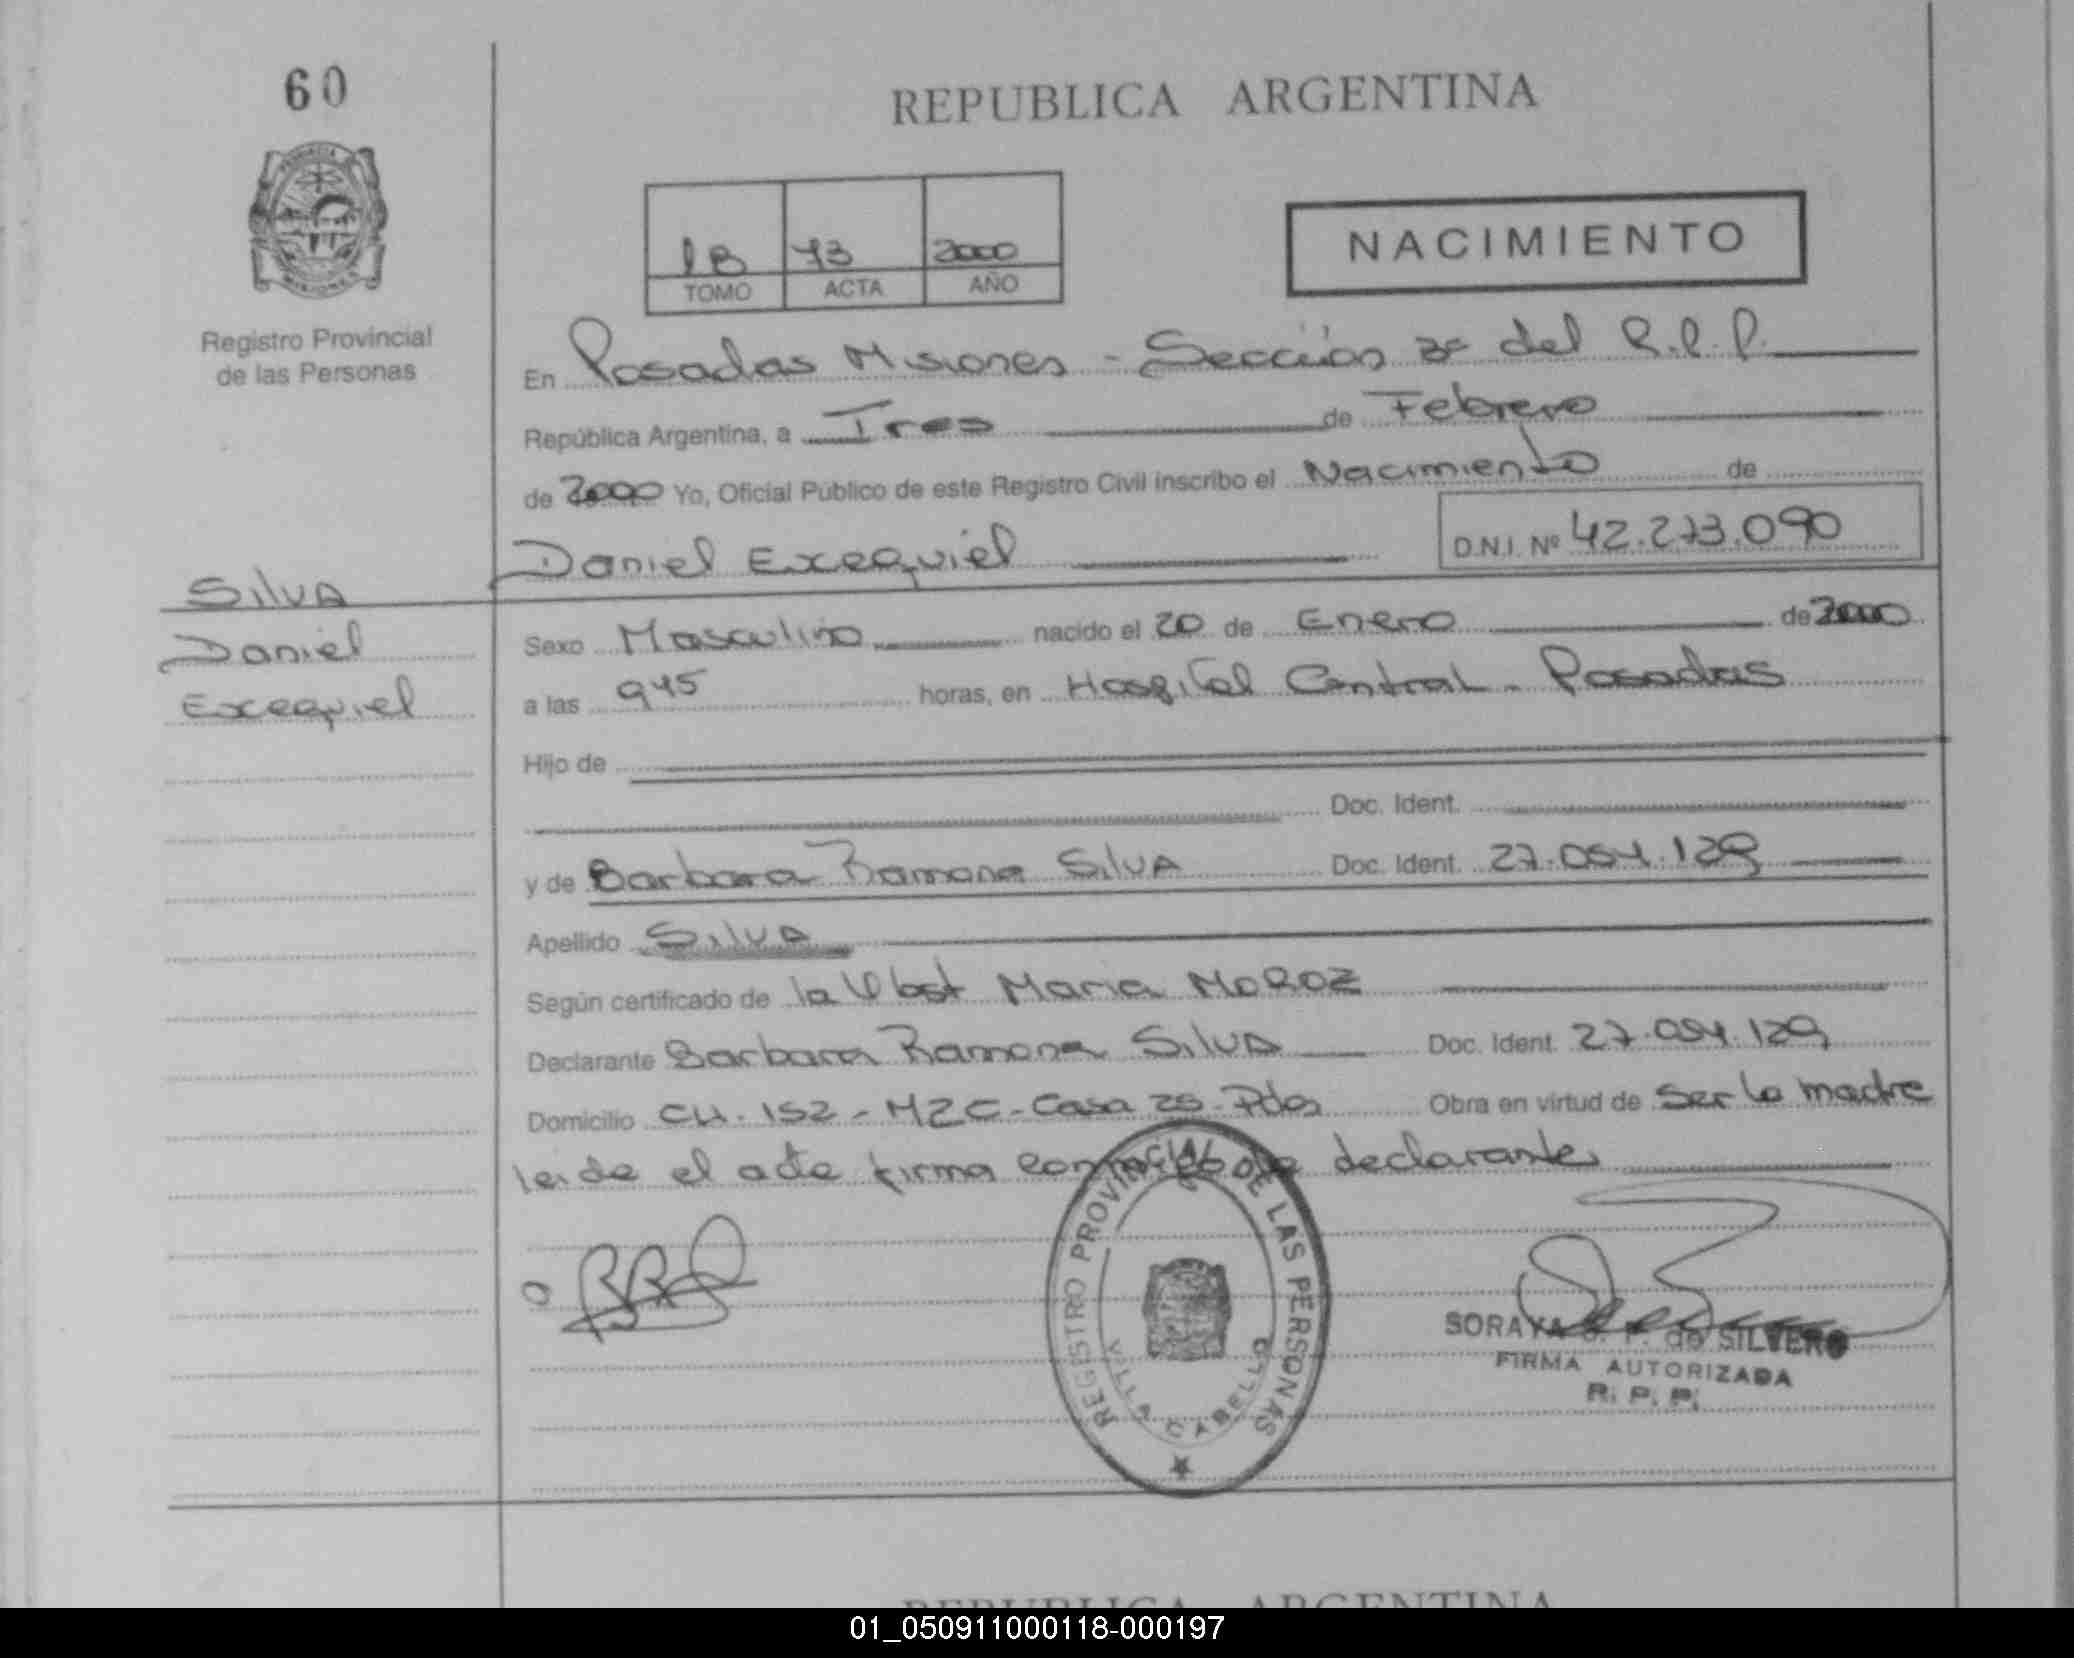 60
REPUBLICA ARGENTINA
PROVINCIA DE
MISIONES
Registro Provincial
de las Personas
1B 73 2000
TOMO ACTA AÑO
NACIMIENTO
En Posadas Misiones - Sección 3ª del R.P.P.
República Argentina, a Tres de Febrero
de 2000 Yo, Oficial Público de este Registro Civil inscribo el Nacimiento de
Daniel Exequiel D.N.I. Nº 42.273.090
Silva
Daniel
Exequiel
Sexo Masculino nacido el 20 de Enero de 2000
a las 945 horas, en Hospital Central - Posadas
Hijo de
Doc. Ident.
y de Barbara Ramona Silva Doc. Ident. 27.054.129
Apellido Silva
Según certificado de la Obst Maria MOROZ
Declarante Barbara Ramona Silva Doc. Ident. 27.054.129
Domicilio CH. 152 - MZ C - Casa 25 - Pdas Obra en virtud de Ser la madre
leida el acta firma conmigo la declarante
REGISTRO PROVINCIAL DE LAS PERSONAS
VILLA CABELLO
SORAYA F. de SILVERO
FIRMA AUTORIZADA
R. P. P.
REPUBLICA ARGENTINA
01_050911000118-000197